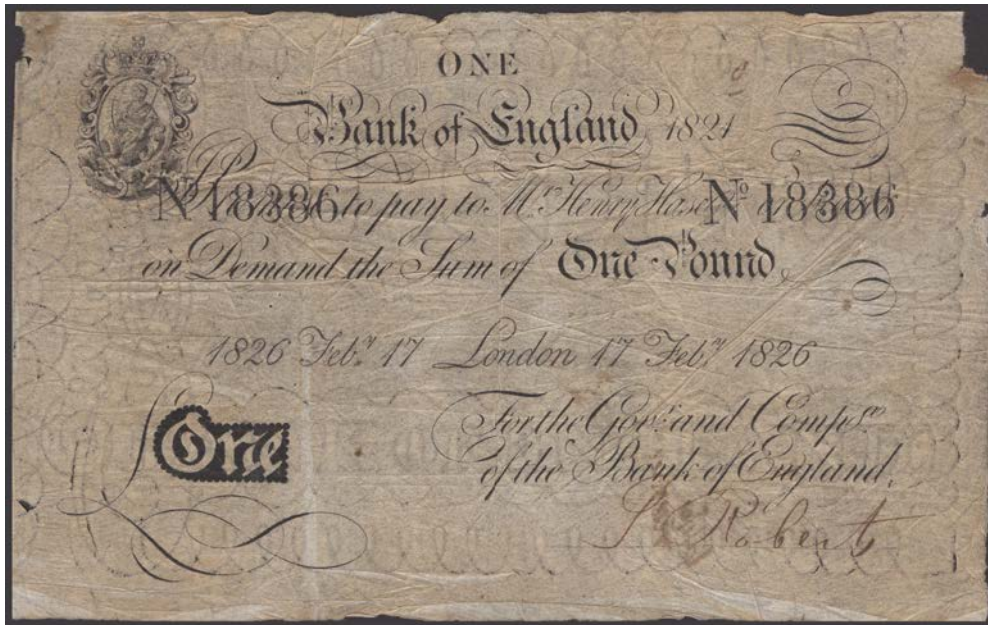 ONE
Bank of England 1821
I Promise to pay to Mr. Henry Hase
No 18386 No 18386
on Demand the Sum of One Pound
1826 Feby. 17 London 17 Feby. 1826
For the Govr. and Compa.
One of the Bank of England.